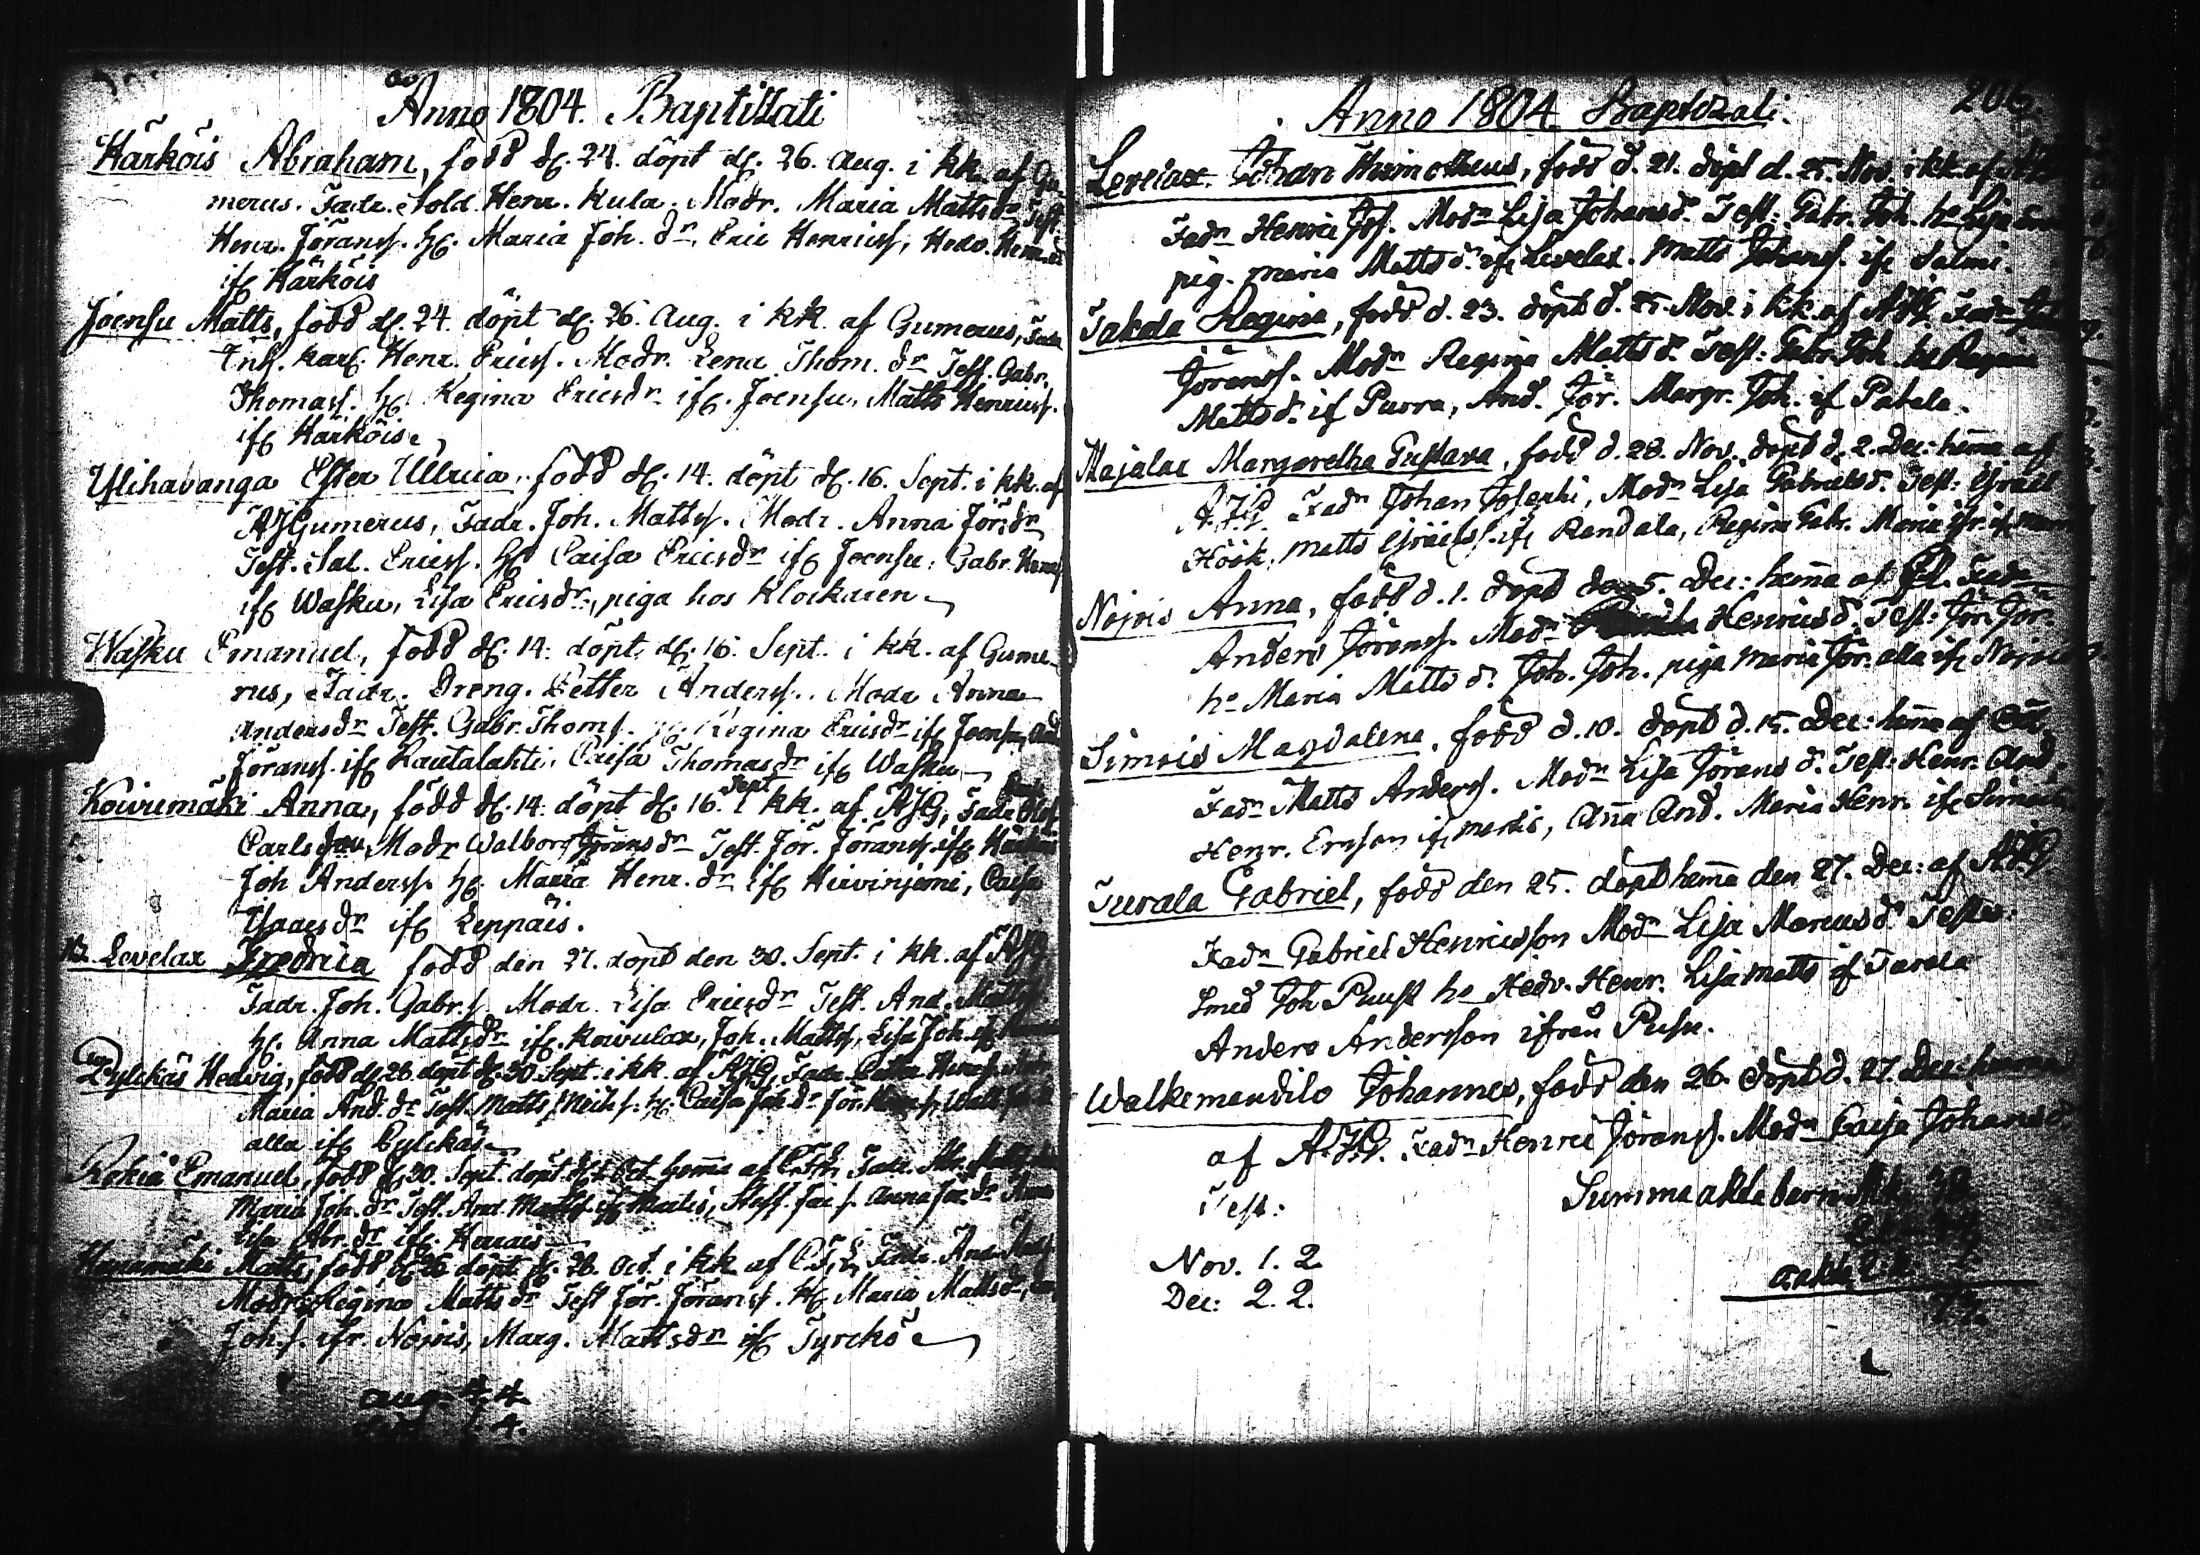 Anno 1804. Baptizati
Härköis Abraham, född d. 24. döpt d. 26. Aug. i kk. af Gu
merus. Fadr. Sold. Henr. Kula. Modr. Maria Matts dr Test.
Henr. Göranss. h. Maria Joh. dr, Eric Henricss, Hedv. Henr. dr
ifr Härköis
Joensu Matts, född d. 24. döpt d. 26. Aug. i kk. af Gumerus, Fadr
Inh. karl. Henr. Ericss. Modr. Lena Thom. dr Test. Gabr.
Thomass. h. Regina Ericsdr ifr. Joensu, Matts Henricss.
ifr Härköis
Ylihavanga Ester Ullrica, född d. 14. döpt d. 16. Sept. i kk. af
AJGumerus, Fadr. Joh. Mattss. Modr. Anna Jör. dr
Test. Sal. Ericss. h. Caisa Ericsdr ifr Joensu, Gabr. Henrs
ifr Wasku, Lisa Ericsdr, piga hos Klockaren
Wasku Emanuel, född d. 14. döpt d. 16. Sept. i kk. af Gume-
rus, Fadr. Dreng. Petter Anderss. Modr Anna
Andersdr Test. Gabr. Thoms. h. Regina Ericsdr ifr Joensu, And
Jöranss. ifr Rautalahti, Caisa Thomasdr ifr Wasku
Koivumäki Anna, född d. 14. döpt d. 16. Sept i kk. af AJG, Fadr
Carlsson Modr Walborg Jöransdr Test. Jör. Jöranss. ifr Härköis
Joh Anderss. h. Maria Henr. dr ifr Hirvinjemi, Caisa
Isaacsdr ifr Leppäis.
Levelax Fredrica född den 27. döpt den 30. Sept. i kk. af AJG
Fadr. Joh. Gabr. s. Modr. Lisa Ericsdr Test. And. Mattss
h. Anna Mattsdr ifr. Koivulax, Joh. Mattss, Lisa Joh. ifr
Pylckäs Hedvig, född d. 28. döpt d. 30. Sept. i kk. af AJG, Fadr Petter Henrss.
Maria And. dr Test. Matts Mich. s. h. Caisa Joh dr Jör.
alla ifr Pylckäs
Rokia Emanuel, född d. 30. Sept. döpt d. Oct. hemma af Fadr. Abr.
Maria Joh. dr Test. And. Mattss ifr Martis, Steff. Jac s. Anna Jac. dr
Lisa Abr. dr ifr. Herrais
Matts, född d. 26 döpt d. 28. Oct. i kk af Fadr. And.
Modr Regina Matts dr Test Jör. Jöranss. h. Maria Mattsdr,
Joh. s. ifr. Nojois, Marg. Mattsdr ifr Tyrckö
aug. 4. 4.
4.
206.
Anno 1804 Baptizati.
Levelax Johan Thimotheus, född d. 21. döpt d. 25. Nov. i kk. af AJG
Fadr Henric Jos. Modr Lisa Johansdr. Test: Gabr. Joh. ha Lisa
pig. Maria Mattsdr. ifr Levelax. Matts Johanss. ifr Salmi.
Jakola Regina, född d. 23. döpt d. 25. Nov. i kk. af AJG. Fadr
Jöranss. Modr Regina Mattsdr. Test: Gabr. Joh. ha Regina
Mattsdr. if Purra, And. Jör. Margr. Joh. if Pakala.
Majalax Margaretha Gustava, född d. 28. Nov. döpt d. 2. Dec: hemma af
A.J.G. Fadr Johan Josephi, Modr Lisa Gabrielsd. Test: Israel
Höök, Matts Israelss. ifr Randala, Regina Gabr. Maria Isr.
Nojois Anna, född d. 1. döpt den 5. Dec: hemma af Fadr
Anders Jöranss. Modr Henricsd. Test: Jör. Jör.
ha Maria Mattsd. Joh. Joh. piga Maria Jör. alla ifr Nojois
Simois Magdalena, född d. 10. döpt d. 15. Dec: hemma af
Fadr Matts Anderss. Modr Lisa Jöransd. Test: Henr. And.
Henr. Ersson ifr Martis, Anna And. Maria Henr. ifr Simois
Turala Gabriel, född den 25. döpt hemma den 27. Dec: af A.J.G.
Fadr Gabriel Henricsson Modr Lisa Marcusd. Testes:
Smed Joh Puust ha Hedv. Henr. Lisa Matts if Turala
Anders Andersson ifrån Pusu.
Walkemandilo Johannes, född den 26. döpt d. 27. Dec: hemma
af A.J.G. Fadr Henric Jöranss. Modr Caisa Johansd.
Test:
Summa akta barn
Nov. 1. 2
Dec: 2. 2.